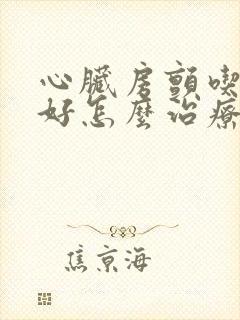 心臟房顫喫
好怎麼治療
焦京海